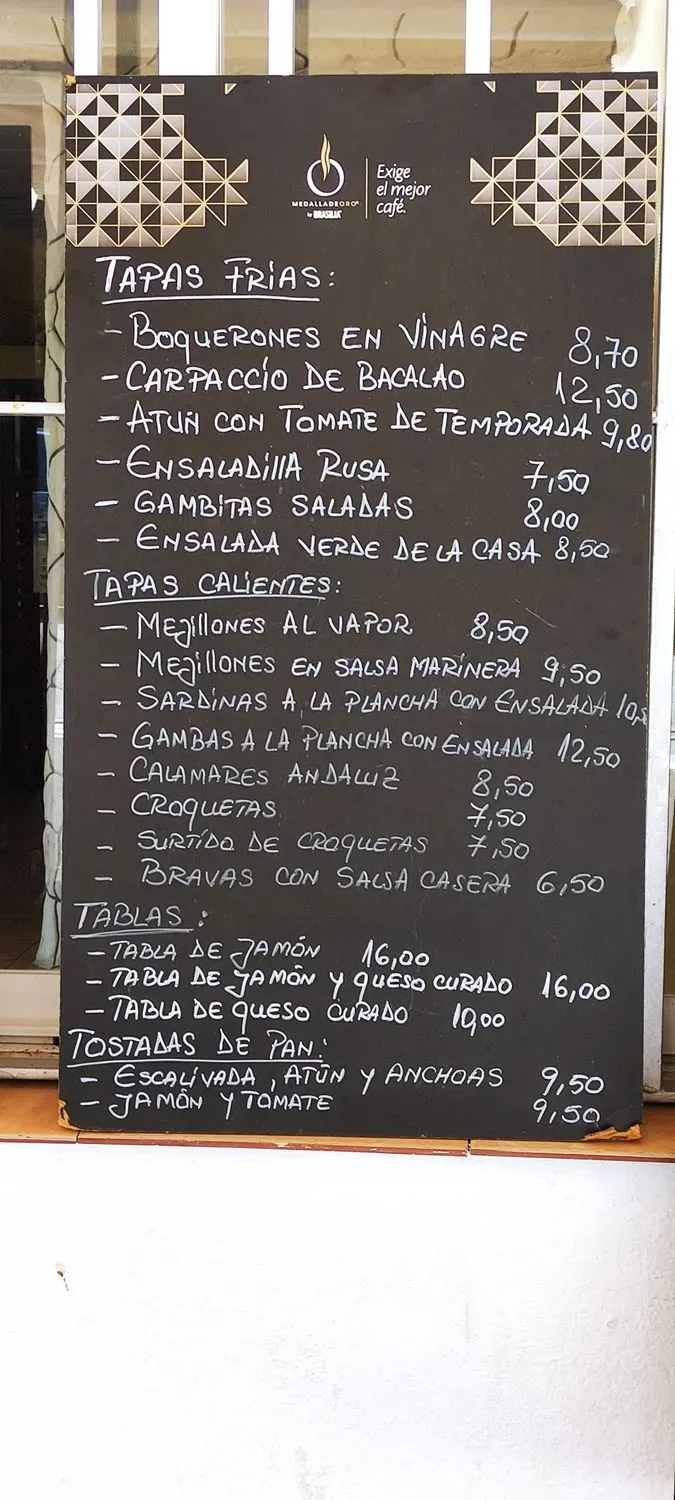 Exige
el mejor
café.
MEDALLADEORO®
by BRASILIA
TAPAS FRIAS:
- BOQUERONES EN VINAGRE 8,70
- CARPACCIO DE BACALAO 12,50
- ATUN CON TOMATE DE TEMPORADA 9,80
- ENSALADILLA RUSA 7,50
- GAMBITAS SALADAS 8,00
- ENSALADA VERDE DE LA CASA 8,50
TAPAS CALIENTES:
- MEJILLONES AL VAPOR 8,50
- MEJILLONES EN SALSA MARINERA 9,50
- SARDINAS A LA PLANCHA CON ENSALADA
- GAMBAS A LA PLANCHA CON ENSALADA 12,50
- CALAMARES ANDALUZ 8,50
- CROQUETAS 7,50
- SURTIDO DE CROQUETAS 7,50
- BRAVAS CON SALSA CASERA 6,50
TABLAS:
- TABLA DE JAMÓN 16,00
- TABLA DE JAMÓN Y QUESO CURADO 16,00
- TABLA DE QUESO CURADO
TOSTADAS DE PAN:
- ESCALIVADA, ATÚN Y ANCHOAS 9,50
- JAMÓN Y TOMATE 9,50